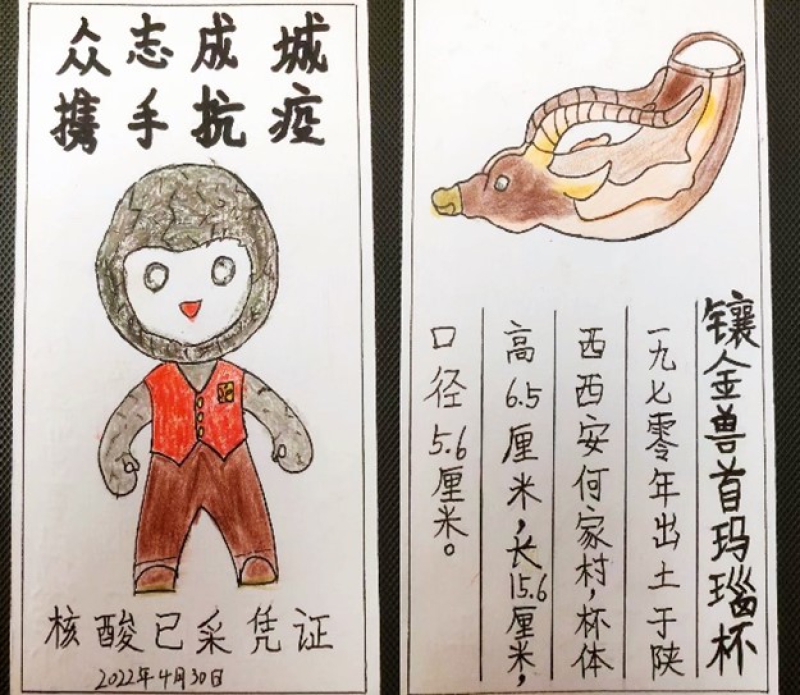 众志成城
携手抗疫
核酸已采凭证
2022年4月30日
镶金兽首玛瑙杯
一九七零年出土于陕
西西安何家村，杯体
高6.5厘米，长15.6厘米，
口径5.6厘米。